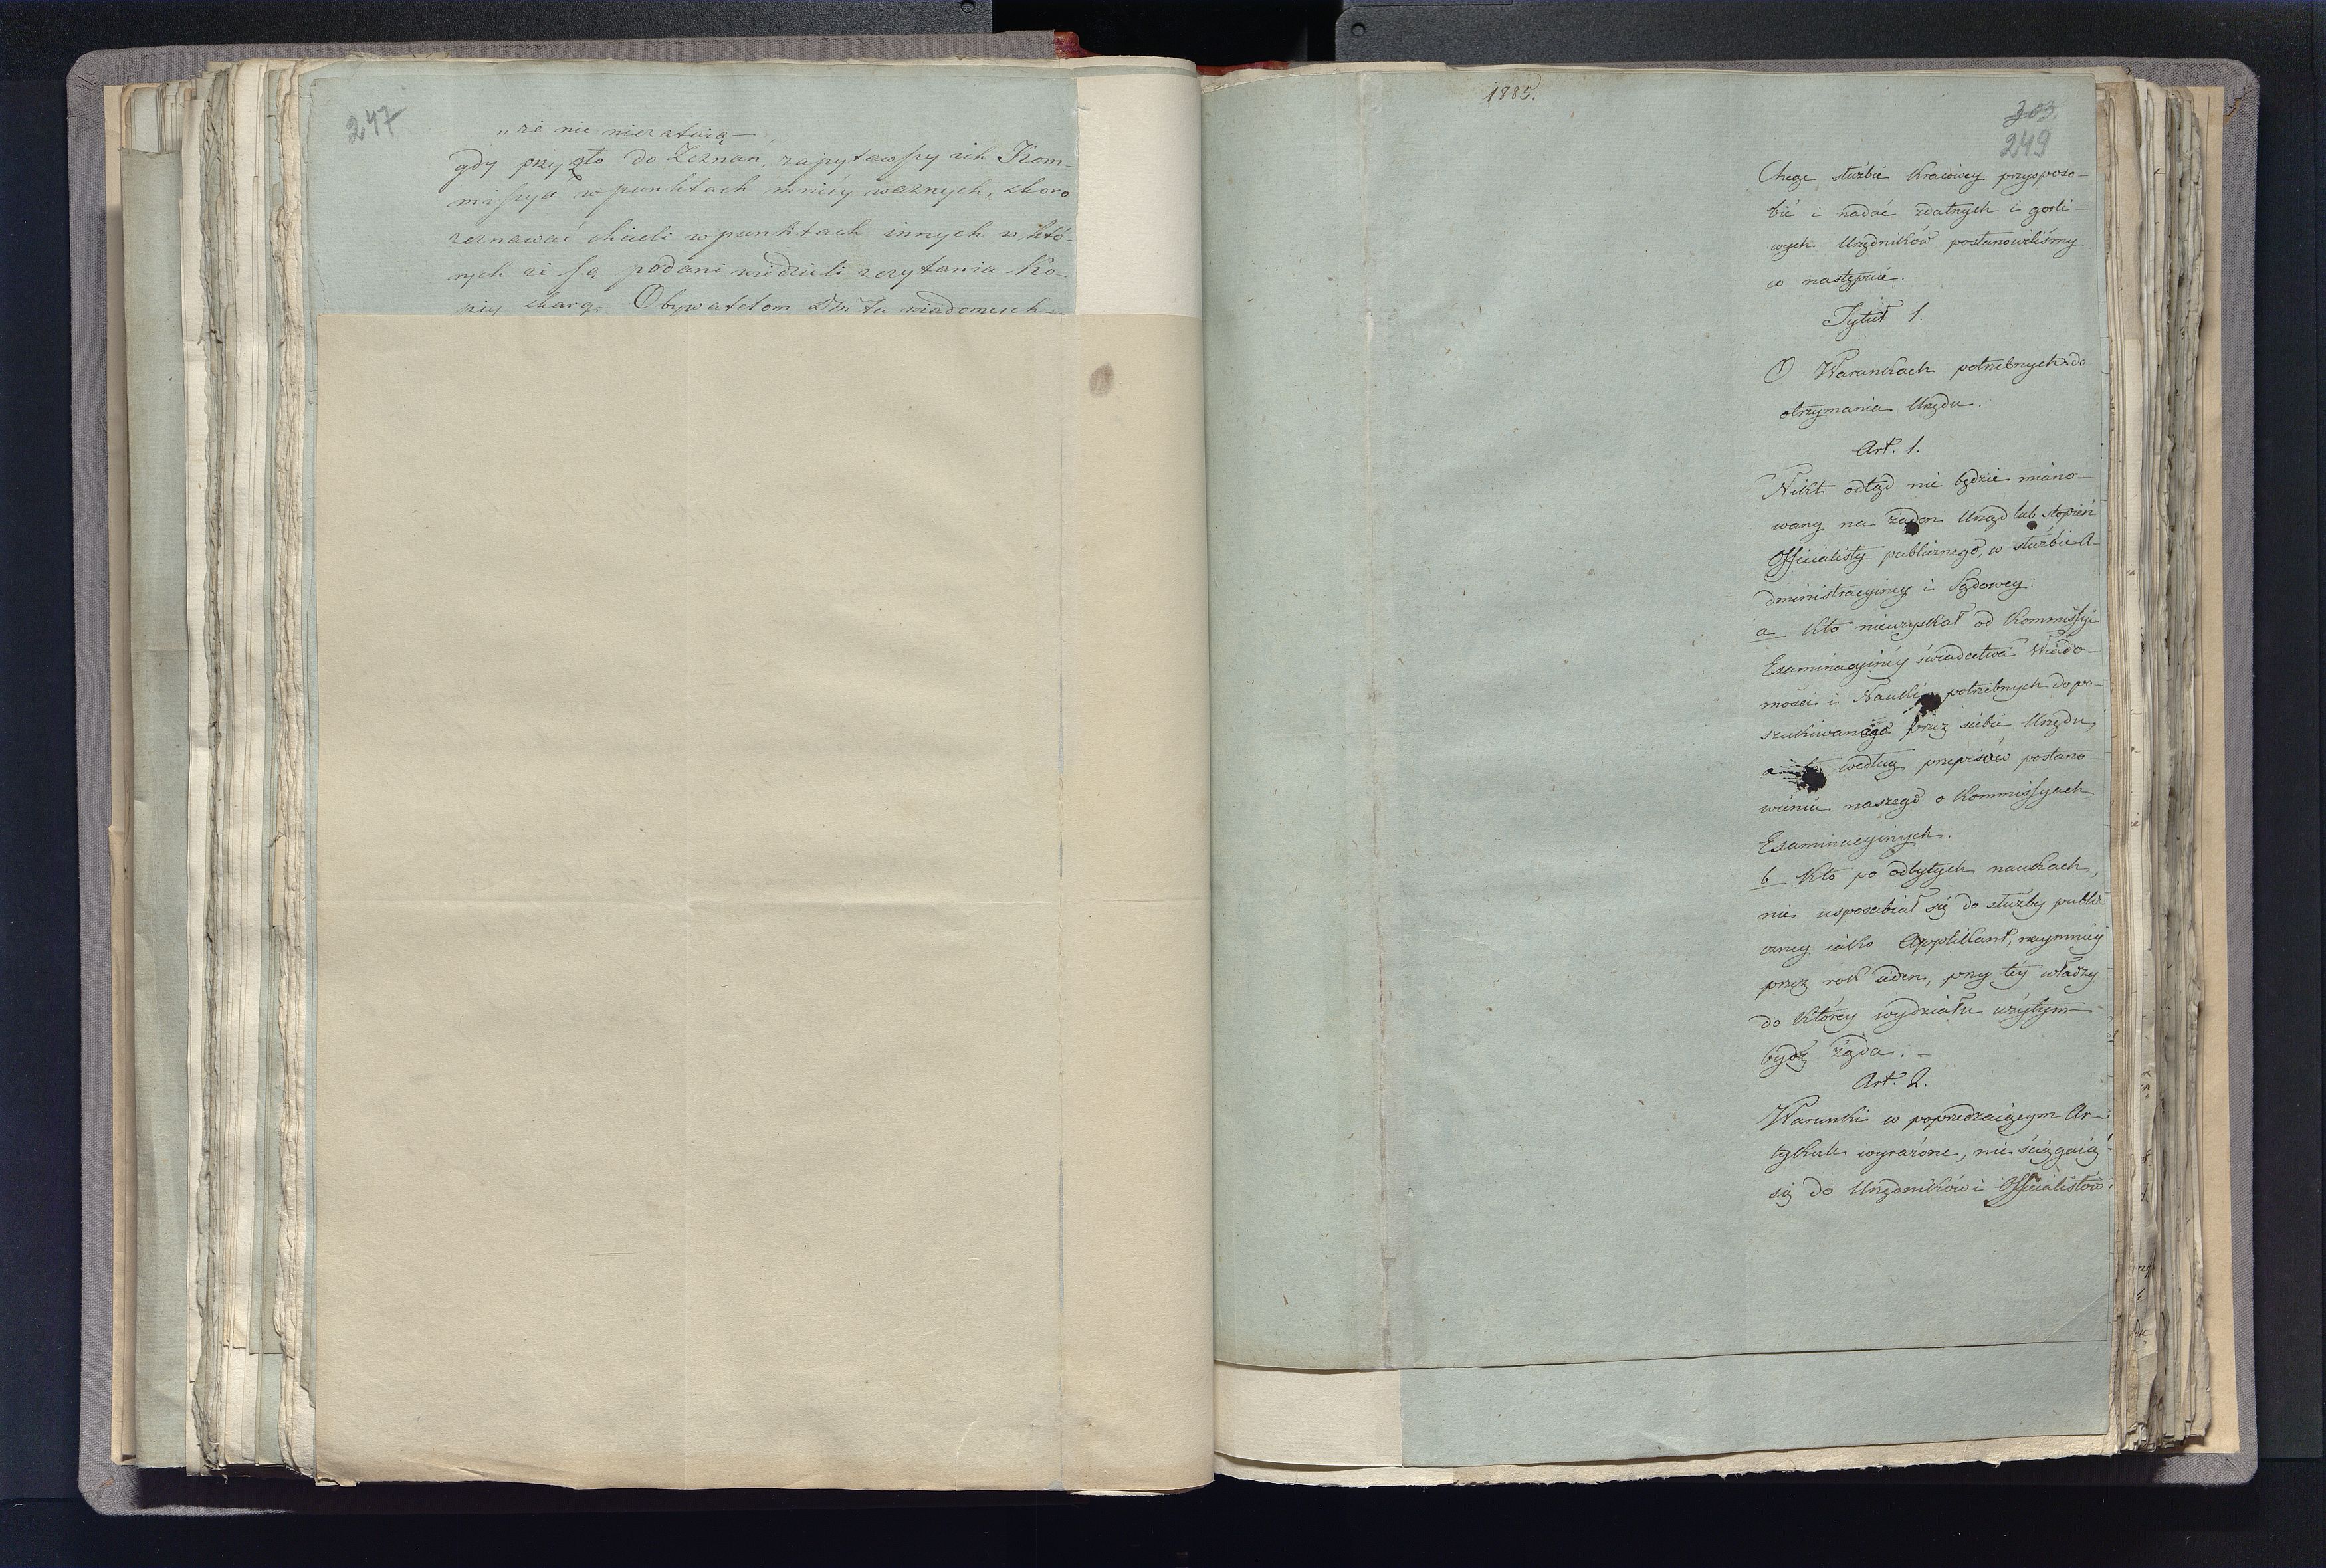 247
„że nic niezataią —
gdy przyszło do Zeznań, zapytawszy ich Kom-
missya w punktach mniéy ważnych, skoro
zeznawać chcieli w punktach innych w któ-
rych że są podani wiedzieli zczytania Ko-
pii skarg. Obywatelom Dmtu wiadomych
1885.
303.
249
Chcąc służbie Kraiowey przysposo-
bić i nadać zdatnych i gorli-
wych Urzędników postanowiliśmy
co następuie.
Tytuł 1.
O Warunkach potrzebnych do
otrzymania Urzędu.
Art. 1.
Nikt odtąd nie będzie miano-
wany na żaden Urząd lub stopień
Officialisty publicznego, w służbie A-
dministracyiney i Sądowey:
a Kto nieuzyskał od Kommissyi
Examinacyinéy świadectwa Wiado-
mości i Nauki potrzebnych do po-
szukiwanego przez siebie Urzędu,
a to według przepisów postano-
wienia naszego o Kommissyach
Examinacyinych.
b Kto po odbytych naukach,
nie usposabiał się do służby publi-
czney iako Applikant, naymniéy
przez rok ieden, przy téy władzy
do któréy wydziału użytym
bydź żąda. –
Art. 2.
Warunki w poprzedzaiącym Ar-
tykule wyrażone, nie ściągaią
się do Urzędników i Officialistów